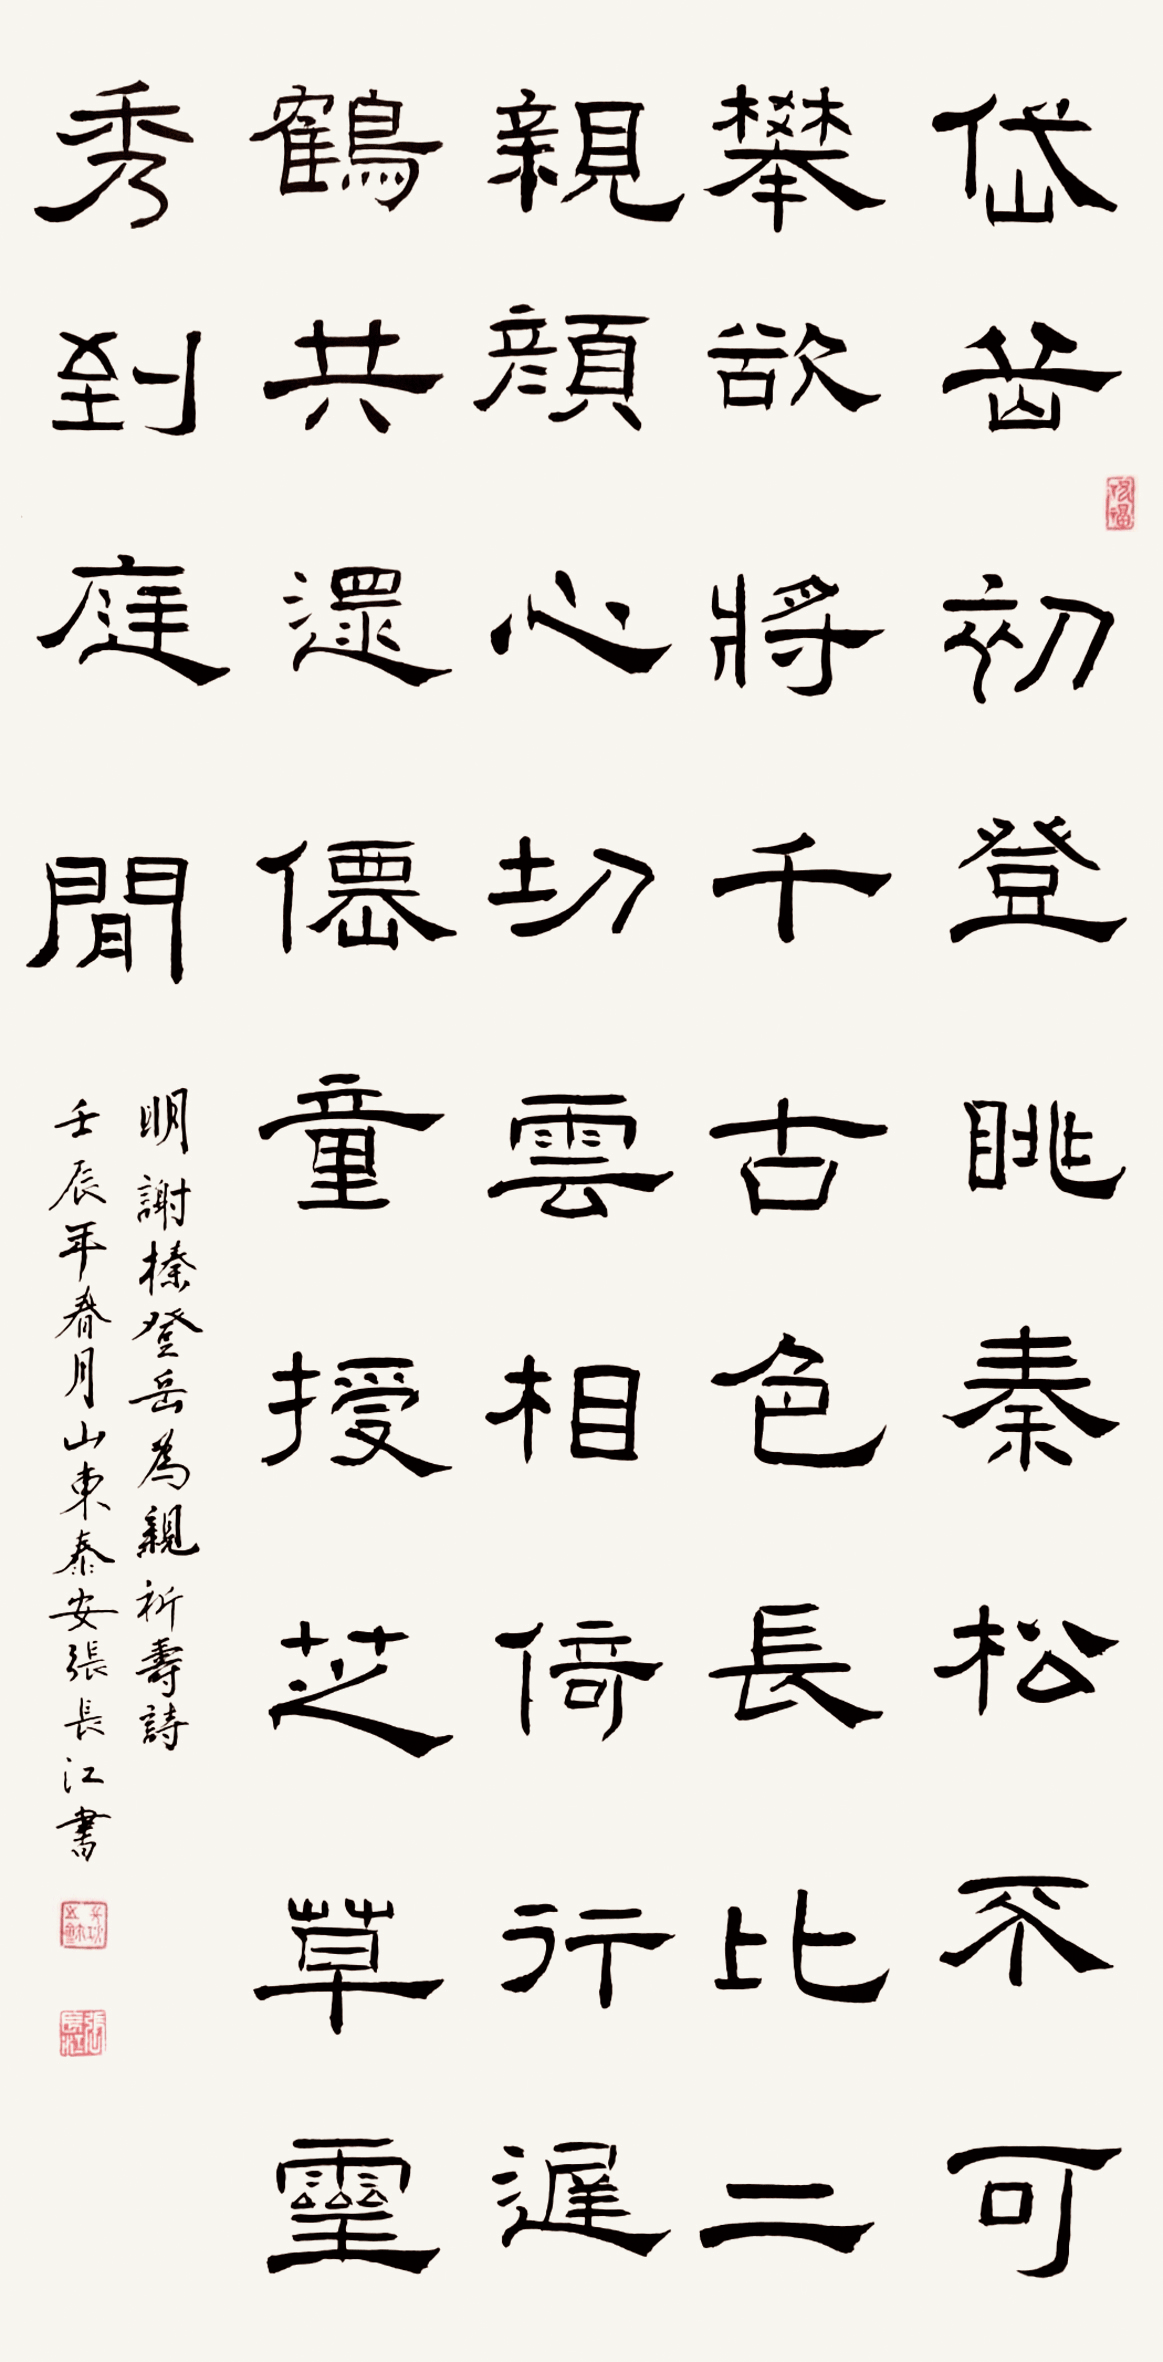 岱嶽初登眺秦松不可
攀欲將千古色長比二
親顔心切雲相倚行遲
鶴共還僊童授芝草靈
秀到庭間
明謝榛登岳為親祈壽詩
壬辰年春月山東泰安張長江書